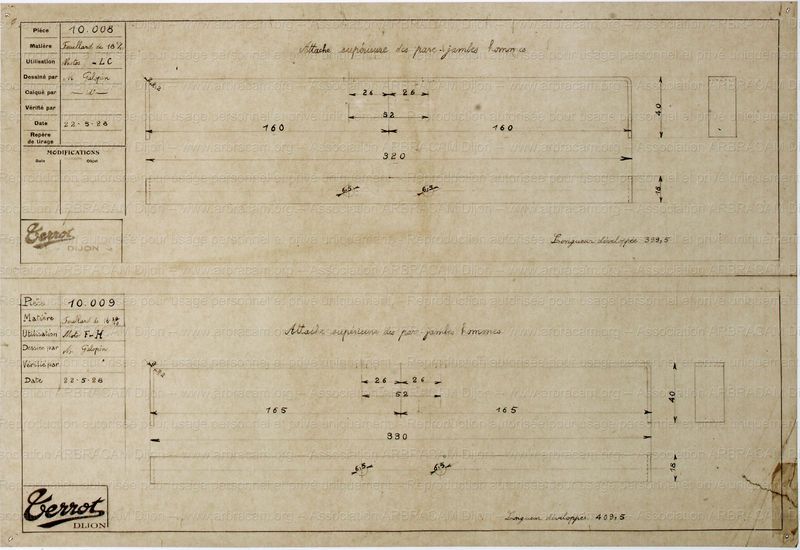 Pièce 10.008
Matière Feuillard de 18
Utilisation Motos - LC
Dessiné par M. Galopin
Calqué par — d° —
Vérifié par
Date 22-5-28
Repère
de tirage
MODIFICATIONS
Date Objet
Terrot
DIJON
Attache supérieure des pare-jambes hommes
26 26
52
160 160
320
40
6,5 6,5
18
Longueur développée 399,5
Pièce 10.009
Matière Feuillard de 18
Utilisation Moto F-H
Dessiné par M. Galopin
Vérifié par
Date 22-5-28
Terrot
DIJON
Attache supérieure des pare-jambes hommes
26 26
52
165 165
330
40
6,5 6,5
18
Longueur développée 409,5
Reproduction autorisée pour usage personnel et privé uniquement
www.arpracam.org – Association ARBRACAM Dijon